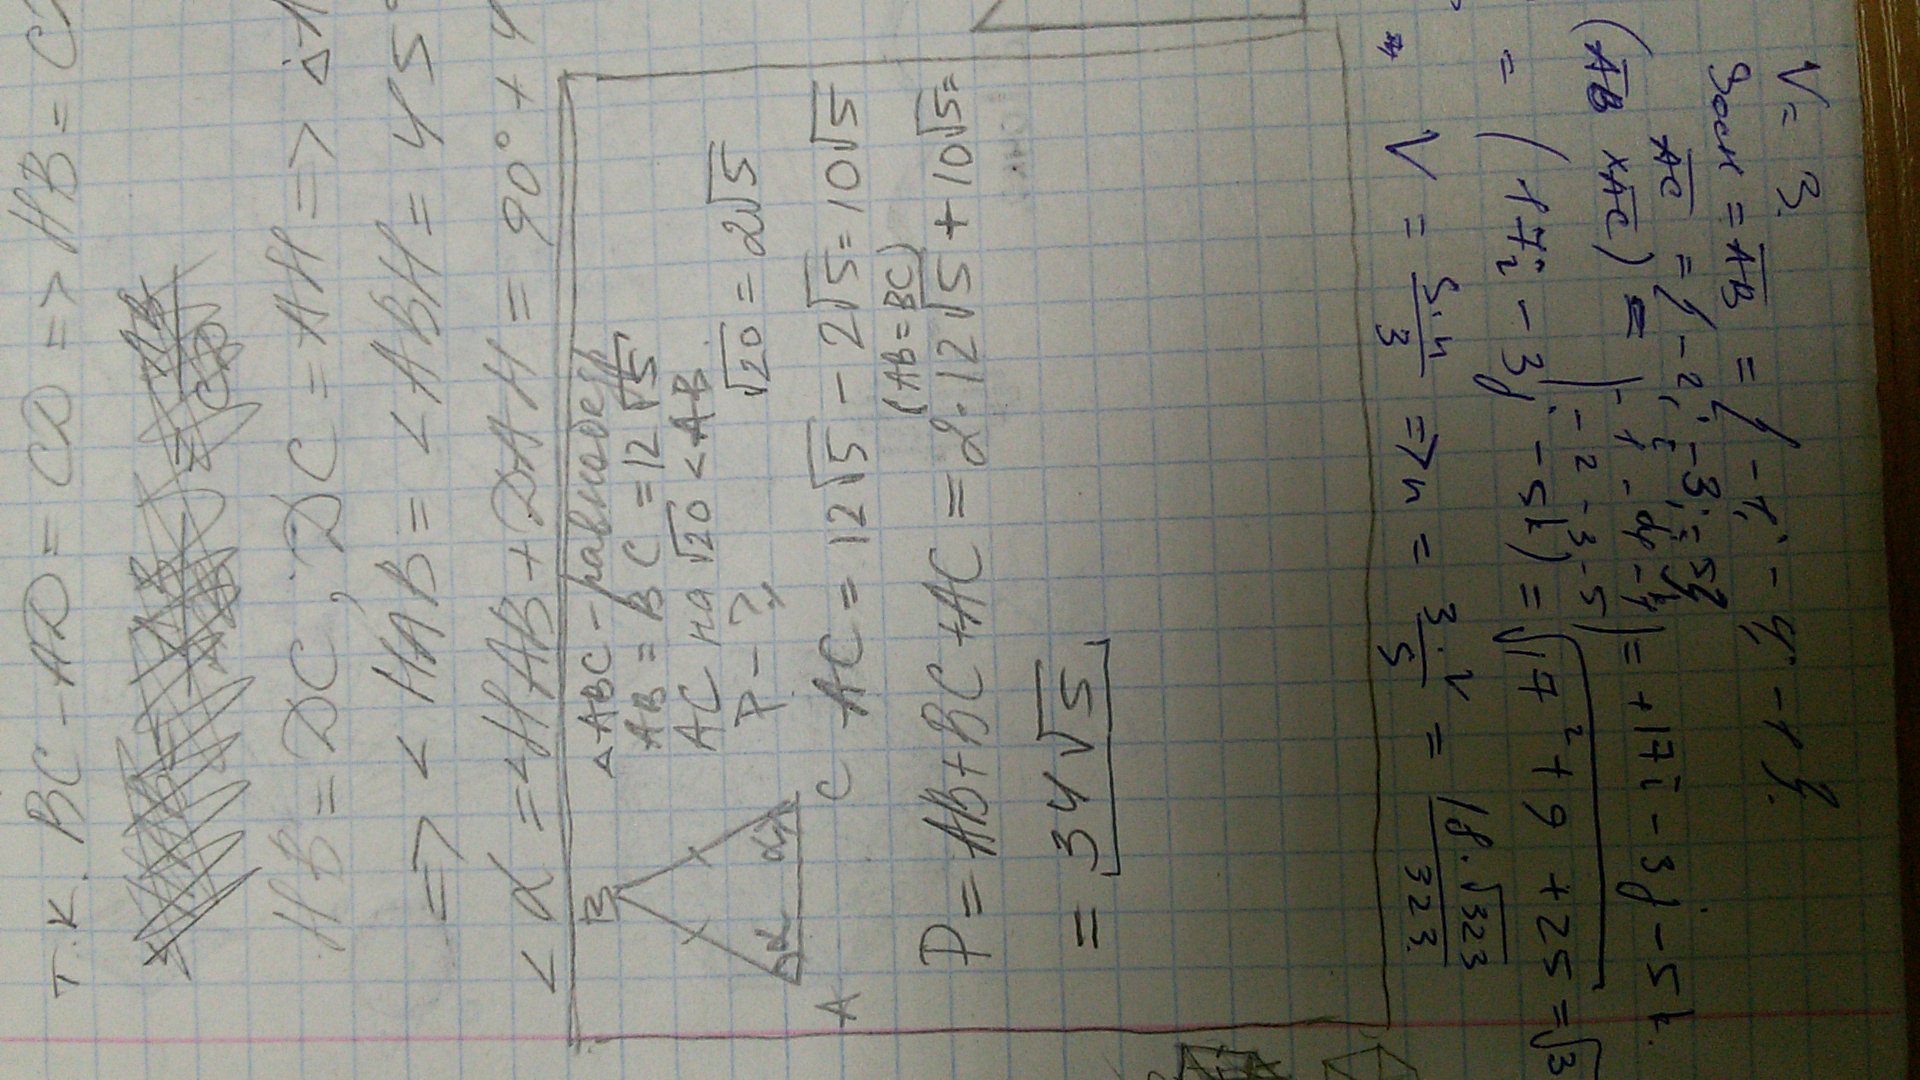 т.к. BC - AD = CD => HB = C
HB = DC, DC = AH => △
=> < HAB = < ABH = 45°
< α = < HAB + DAH = 90° + 4
△ABC - равнобедр
AB = BC = 12√5
AC на √20 < AB
P - ?
√20 = 2√5
B
A
C
AC = 12√5 - 2√5 = 10√5
(AB = BC)
P = AB + BC + AC = 2·12√5 + 10√5 =
= 34√5
V = 3.
Sосн = AB = { -1; -4; -1 }.
AC = { -2; -3; 5 }
(AB × AC) = | i j k -1 -4 -1 -2 -3 -5 | = +17i - 3j - 5k.
= (17i - 3j - 5k) = √17² + 9 + 25 = √3
V = S·h / 3 => h = 3·V / S = 18·√323 / 323.